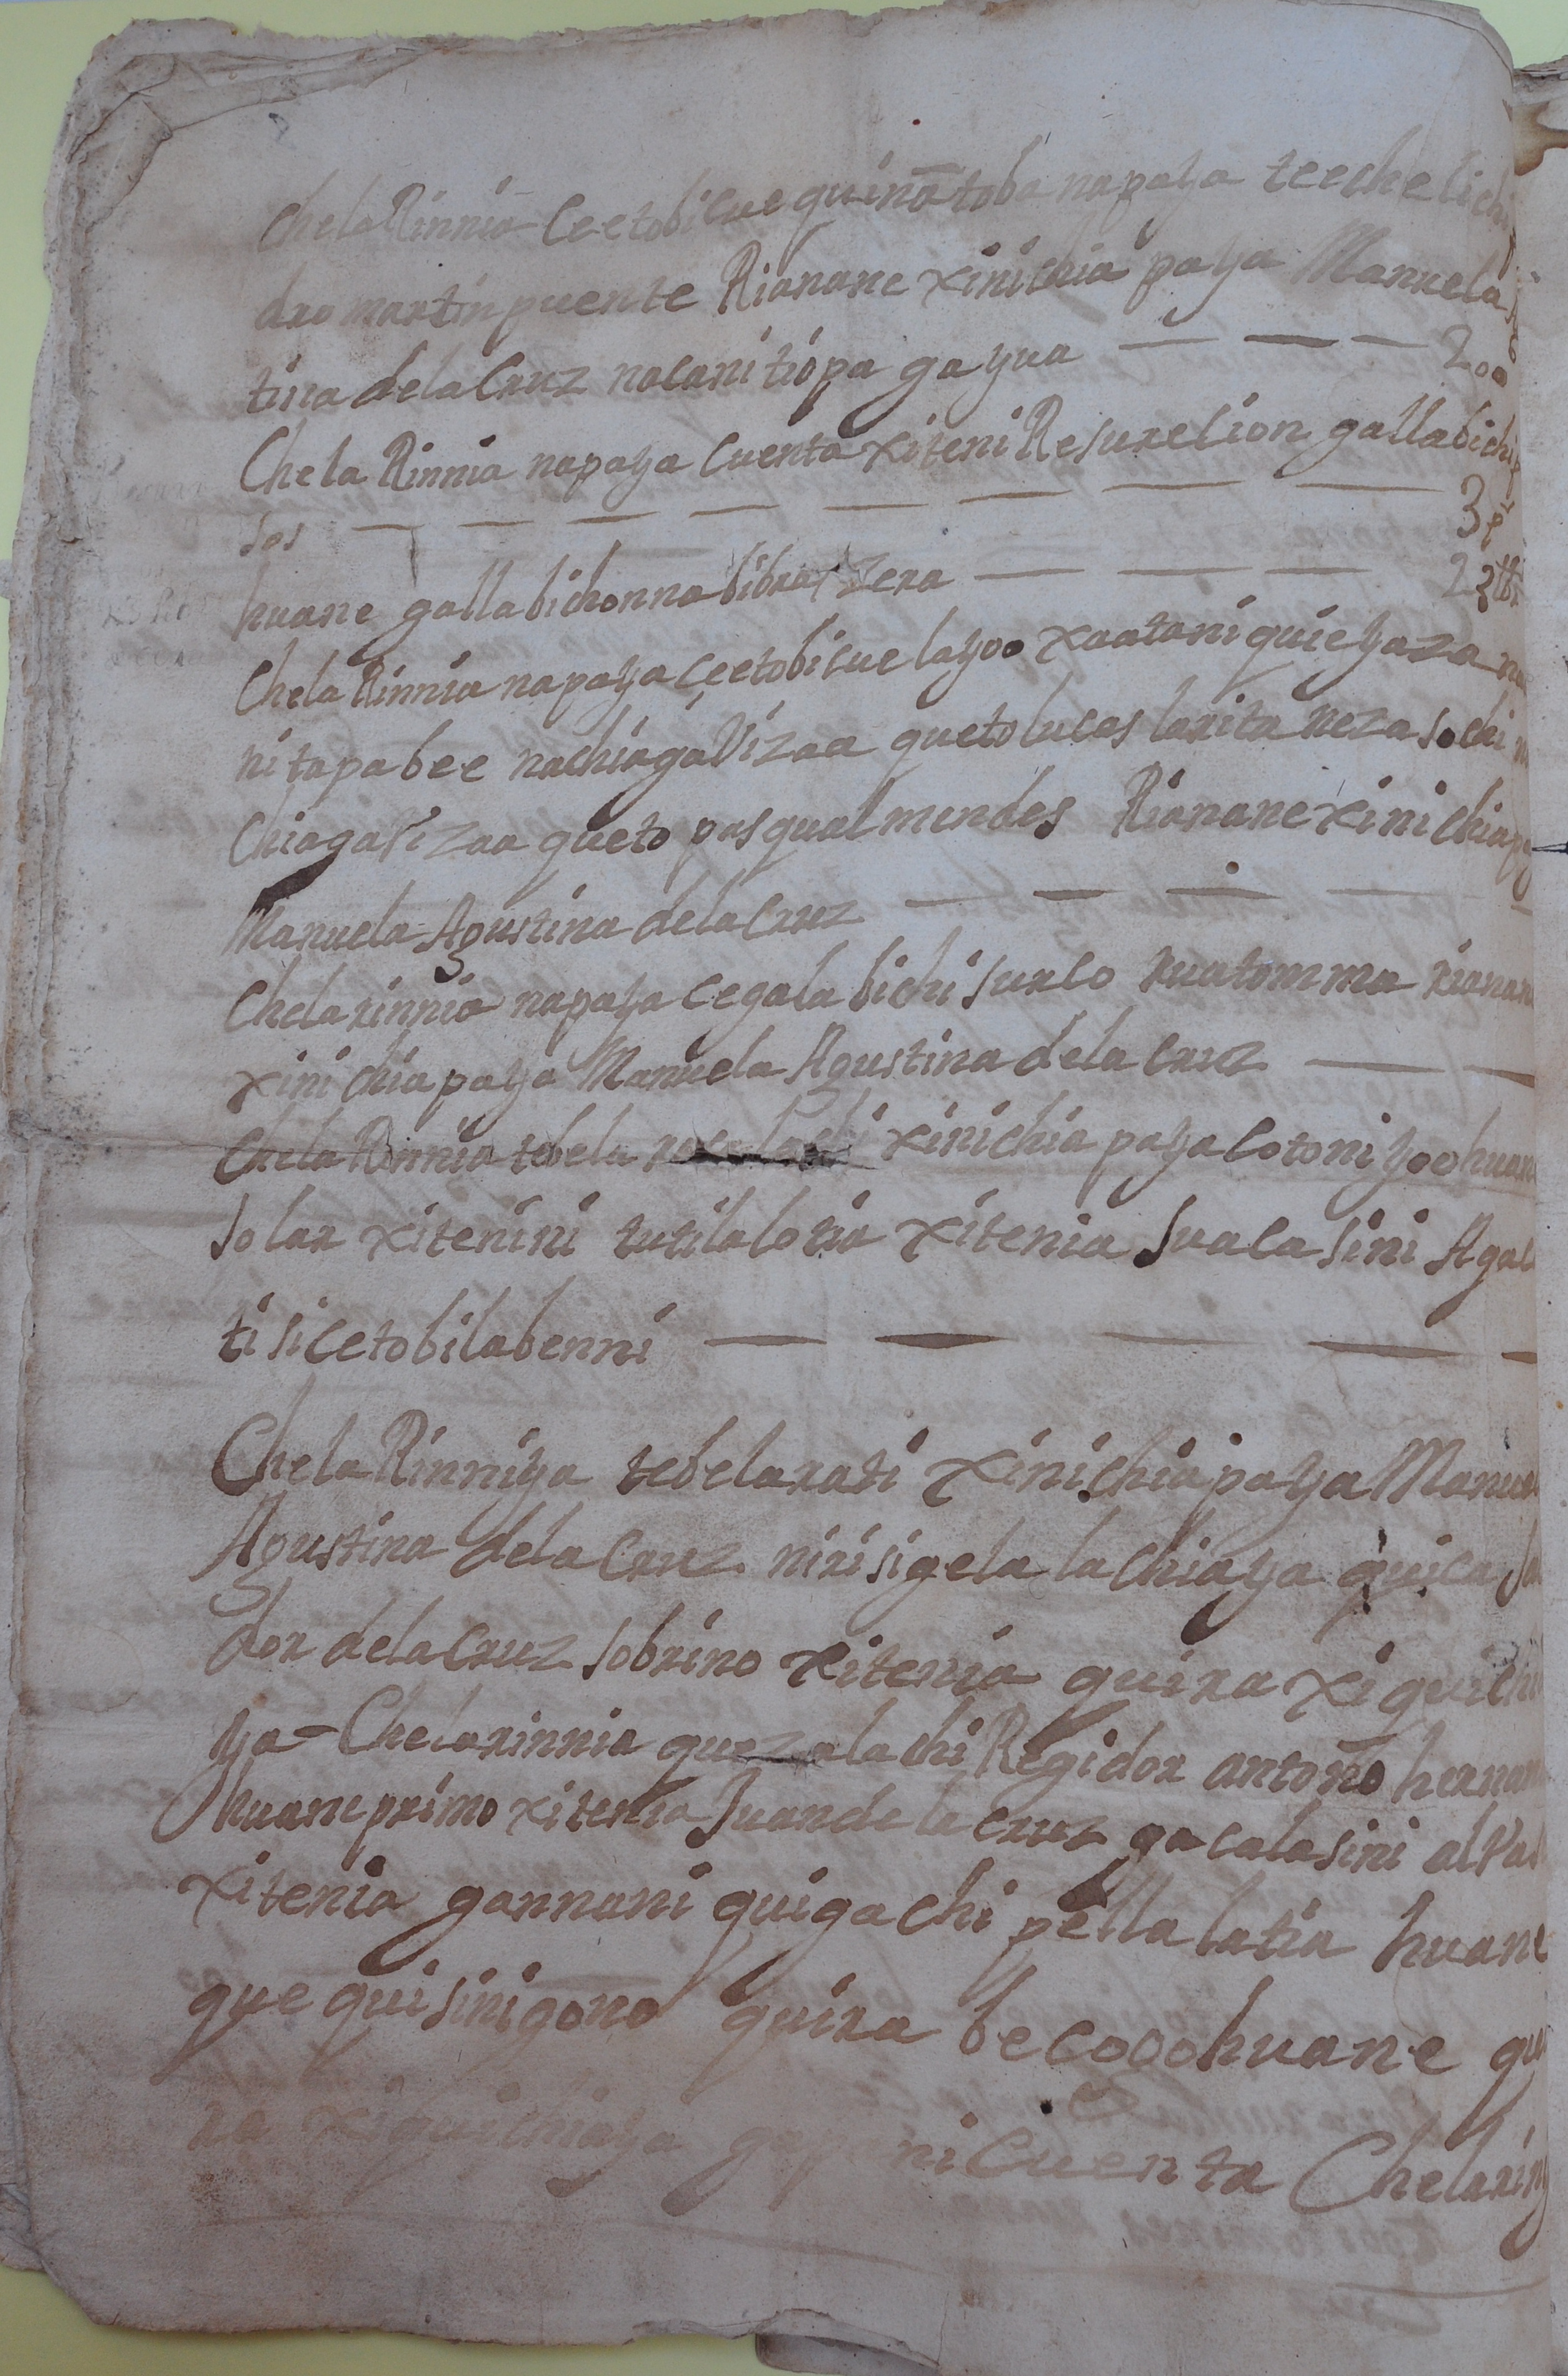 Chela Rinnia Ceetobicue quiñatoba napaya teeche lichi
dro martin puente Rianane xinichia paya Manuela
tina dela Cruz nacani tiopa gayua 200
Chela Rinnia napaya Cuenta xiteni Resurecion gallabichi
sos 3 ps
huane gallabichonna libras Zera 23 lbs
Chela Rinnia napaya Ceetobicue layoo xaatani quieyaza na
ni tapa bee nachiagalizaa queto lucas larita neza sochi
Chiagalizaa queto pasqual mendes Rianane xinichia
Manuela Agustina dela Cruz
Chela rinnia napaya cegala bichi surco ruatomma rianan
xini chia paya Manuela Agustina dela Cruz
Chela Rinnia tebela xinichia paya cotoni yoohuan
solar xitenini tutilalotia xitenia suacasini Aga
ti si cetobilabenni
Chela Rinniya tebelarati xinichia paya Manue
Agustina dela Cruz nirisigela lachiaya quica
dor dela Cruz sobrino xitenia quira xiquichi
ya = Chela rinnia quezalachi Regidor antoño hernan
huane primo xitenia Juan de la cruz gacalasini alva
xitenia gannani quigachi pella latia huane
que quisinigono quira becogohuane qui
ra xiquichiaya gapani Cuenta Chelarin